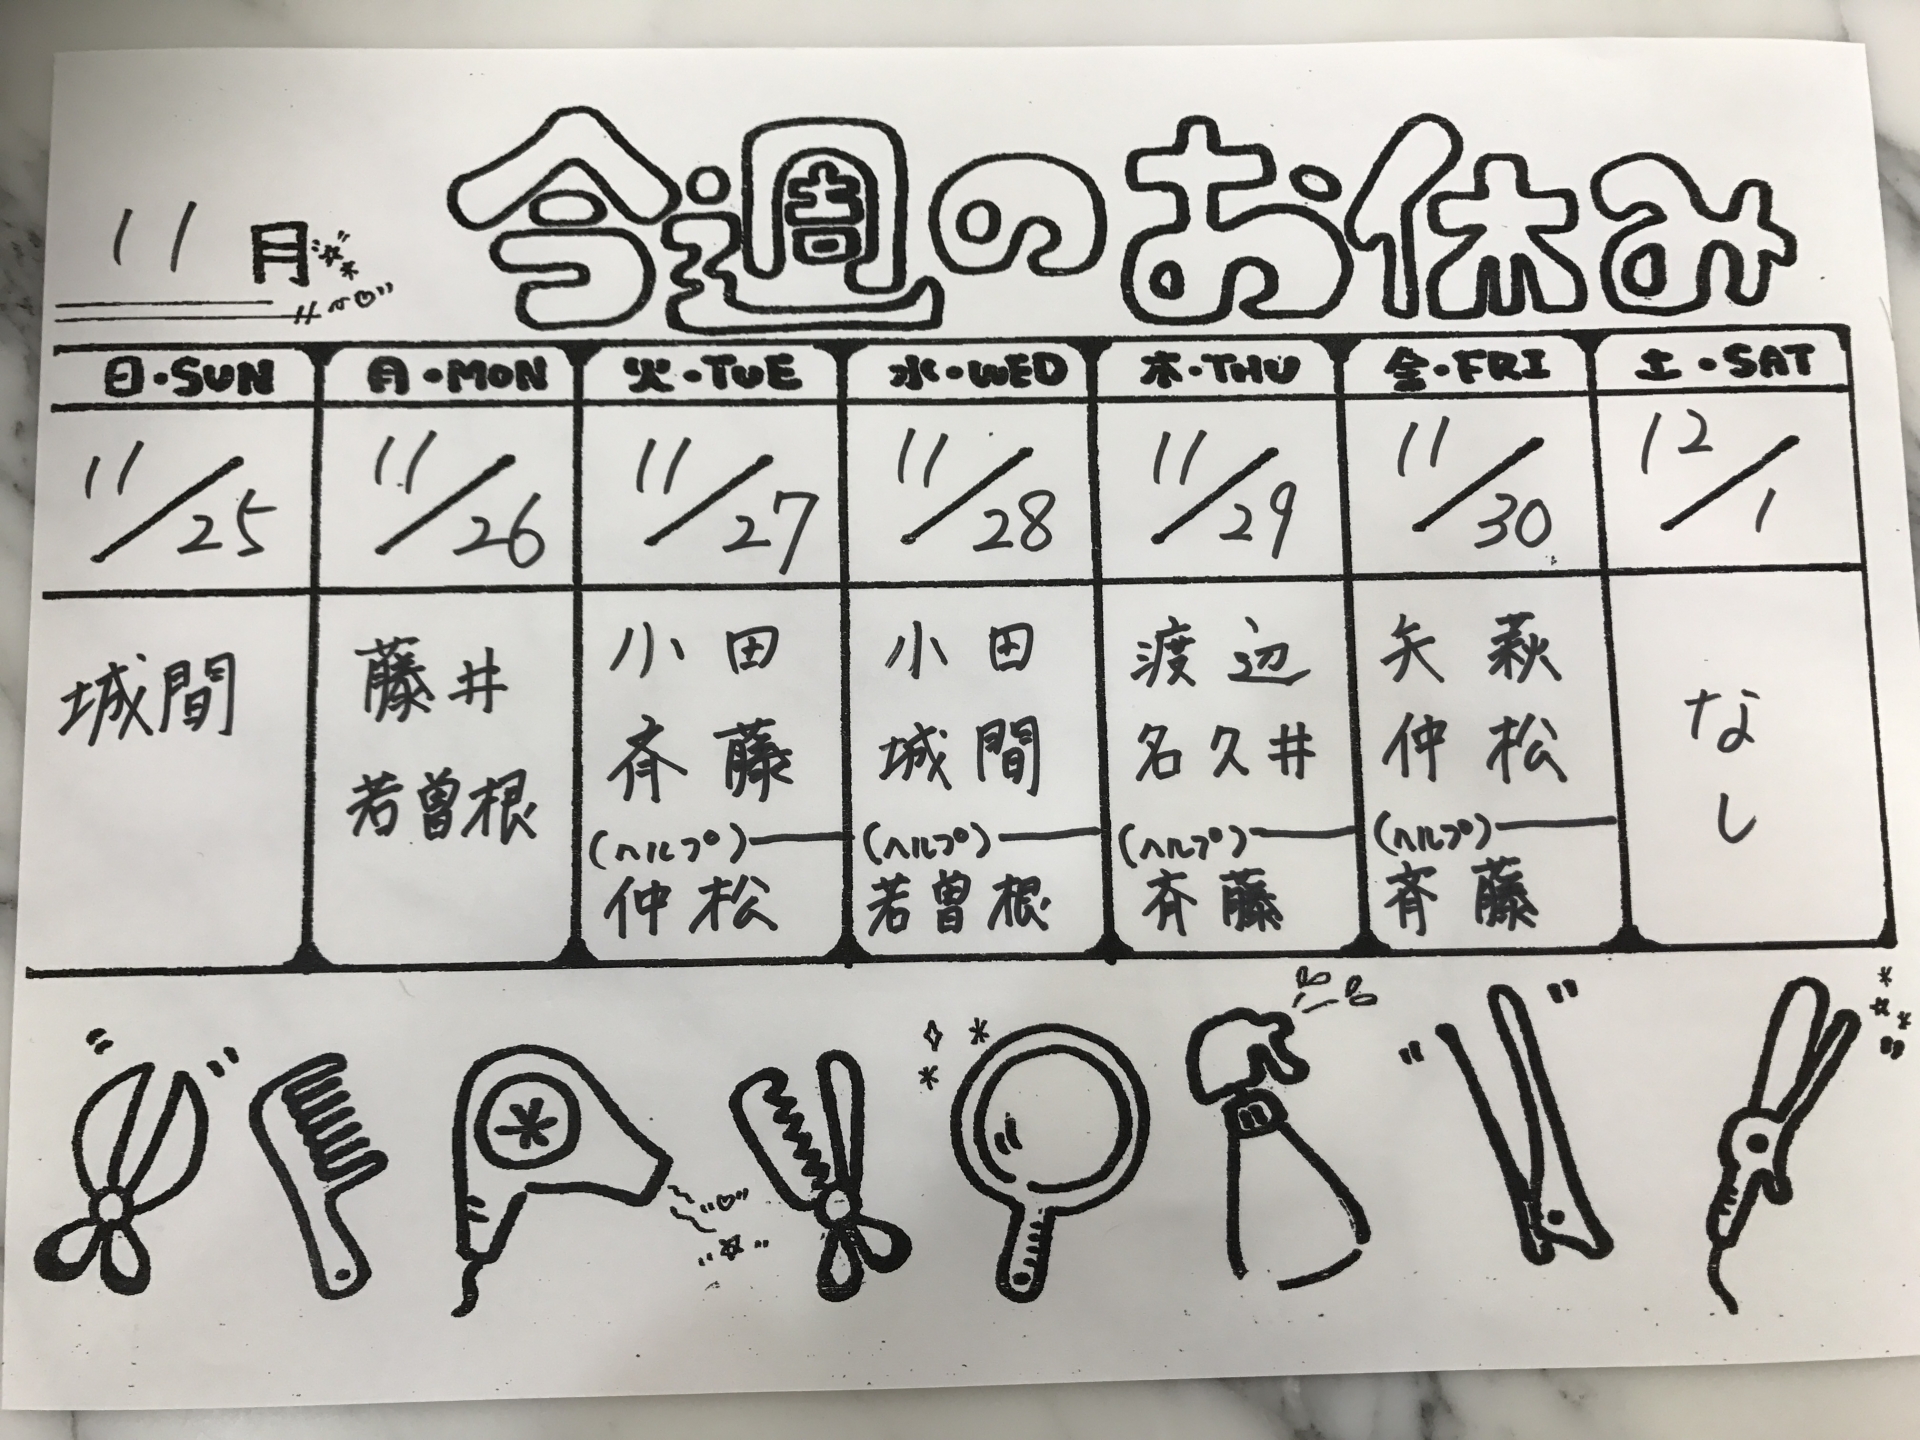 11月
今週のお休み
日・SUN 月・MON 火・TUE 水・WED 木・THU 金・FRI 土・SAT
11/25 11/26 11/27 11/28 11/29 11/30 12/1
城間
藤井
若曽根
小田
斉藤
(ヘルプ)
仲松
小田
城間
(ヘルプ)
若曽根
渡辺
名久井
(ヘルプ)
斉藤
矢萩
仲松
(ヘルプ)
斉藤
なし